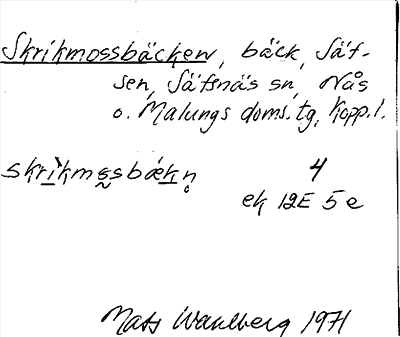 Skrikmossbäcken, bäck, Säf-
sen, Säfsnäs sn, Nås
o. Malungs doms.tg, Kopp.l.
skrìkmo̰sbækn̥ 4
ek 12E 5e
Mats Wahlberg 1971